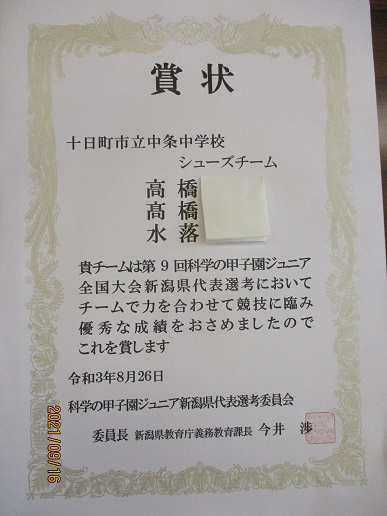 賞状
十日町市立中条中学校
シューズチーム
高橋
髙橋
水落
貴チームは第9回科学の甲子園ジュニア
全国大会新潟県代表選考において
チームで力を合わせて競技に臨み
優秀な成績をおさめましたので
これを賞します
令和3年8月26日
科学の甲子園ジュニア新潟県代表選考委員会
委員長 新潟県教育庁義務教育課長 今井 渉
2021/09/16